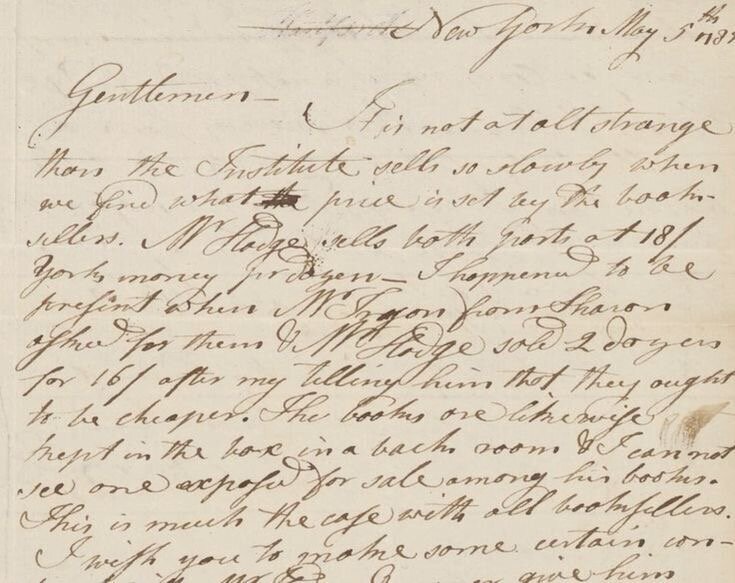 New York May 5th 178
Gentlemen—
It is not at all strange
than the Institute sells so slowly when
we find what price is set by the book-
sellers. Mr Hodge sells both parts at 18/
York money pr dozen— I happened to be
present when Mr Tryon from Sharon
asked for them & Mr Hodge sold 2 dozen
for 16/ after my telling him that they ought
to be cheaper. The books are likewise
kept in the box in a back room & I can not
see one exposed for sale among his books.
This is much the case with all booksellers.
I wish you to make some certain con-
give him